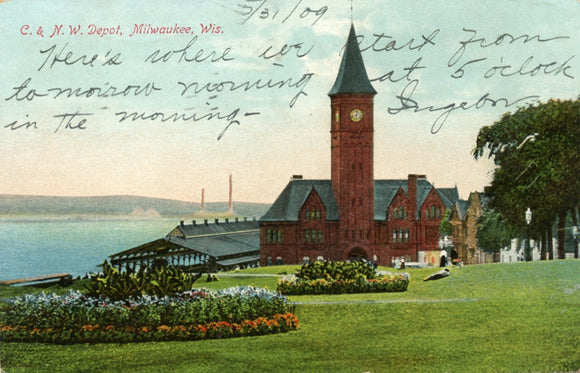 C. & N. W. Depot, Milwaukee, Wis.
7/31/09
Here's where we start from
to-morrow morning at 5 o'clock
in the morning - Ingeborg